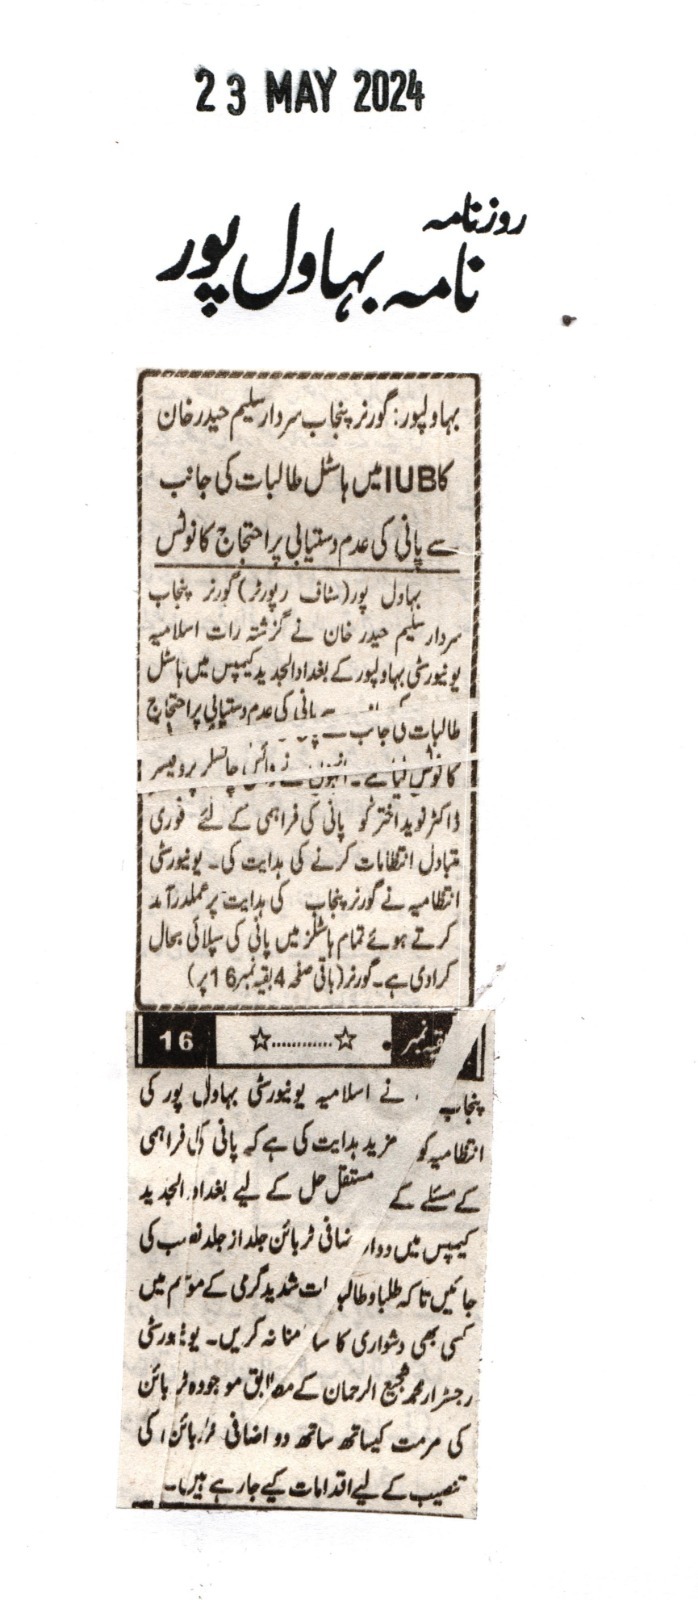 23 MAY 2024
روزنامہ
نامہ بہاول پور
بہاولپور: گورنر پنجاب سردار سلیم حیدر خان
کا IUB میں ہاسٹل طالبات کی جانب
سے پانی کی عدم دستیابی پر احتجاج کا نوٹس
بہاول پور (سٹاف رپورٹر) گورنر پنجاب
سردار سلیم حیدر خان نے گزشتہ رات اسلامیہ
یونیورسٹی بہاولپور کے بغداد الجدید کیمپس میں ہاسٹل
طالبات کی جانب سے پانی کی عدم دستیابی پر احتجاج
کا نوٹس لیا ہے۔ انہوں نے وائس چانسلر پروفیسر
ڈاکٹر نوید اختر کو پانی کی فراہمی کے لئے فوری
متبادل انتظامات کرنے کی ہدایت کی۔ یونیورسٹی
انتظامیہ نے گورنر پنجاب کی ہدایت پر عملدرآمد
کرتے ہوئے تمام ہاسٹلز میں پانی کی سپلائی بحال
کرا دی ہے۔ گورنر (باقی صفحہ 4 بقیہ نمبر 16 پر)
بقیہ نمبر ☆............☆ 16
پنجاب نے اسلامیہ یونیورسٹی بہاول پور کی
انتظامیہ کو مزید ہدایت کی ہے کہ پانی کی فراہمی
کے مسئلے کے مستقل حل کے لیے بغداد الجدید
کیمپس میں دو اضافی ٹربائن جلد از جلد نصب کی
جائیں تاکہ طلبا و طالبات شدید گرمی کے موسم میں
کسی بھی دشواری کا سامنا نہ کریں۔ یونیورسٹی
رجسٹرار محمد شجیع الرحمان کے مطابق موجودہ ٹربائن
کی مرمت کیساتھ ساتھ دو اضافی ٹربائن کی
تنصیب کے لیے اقدامات کیے جا رہے ہیں۔